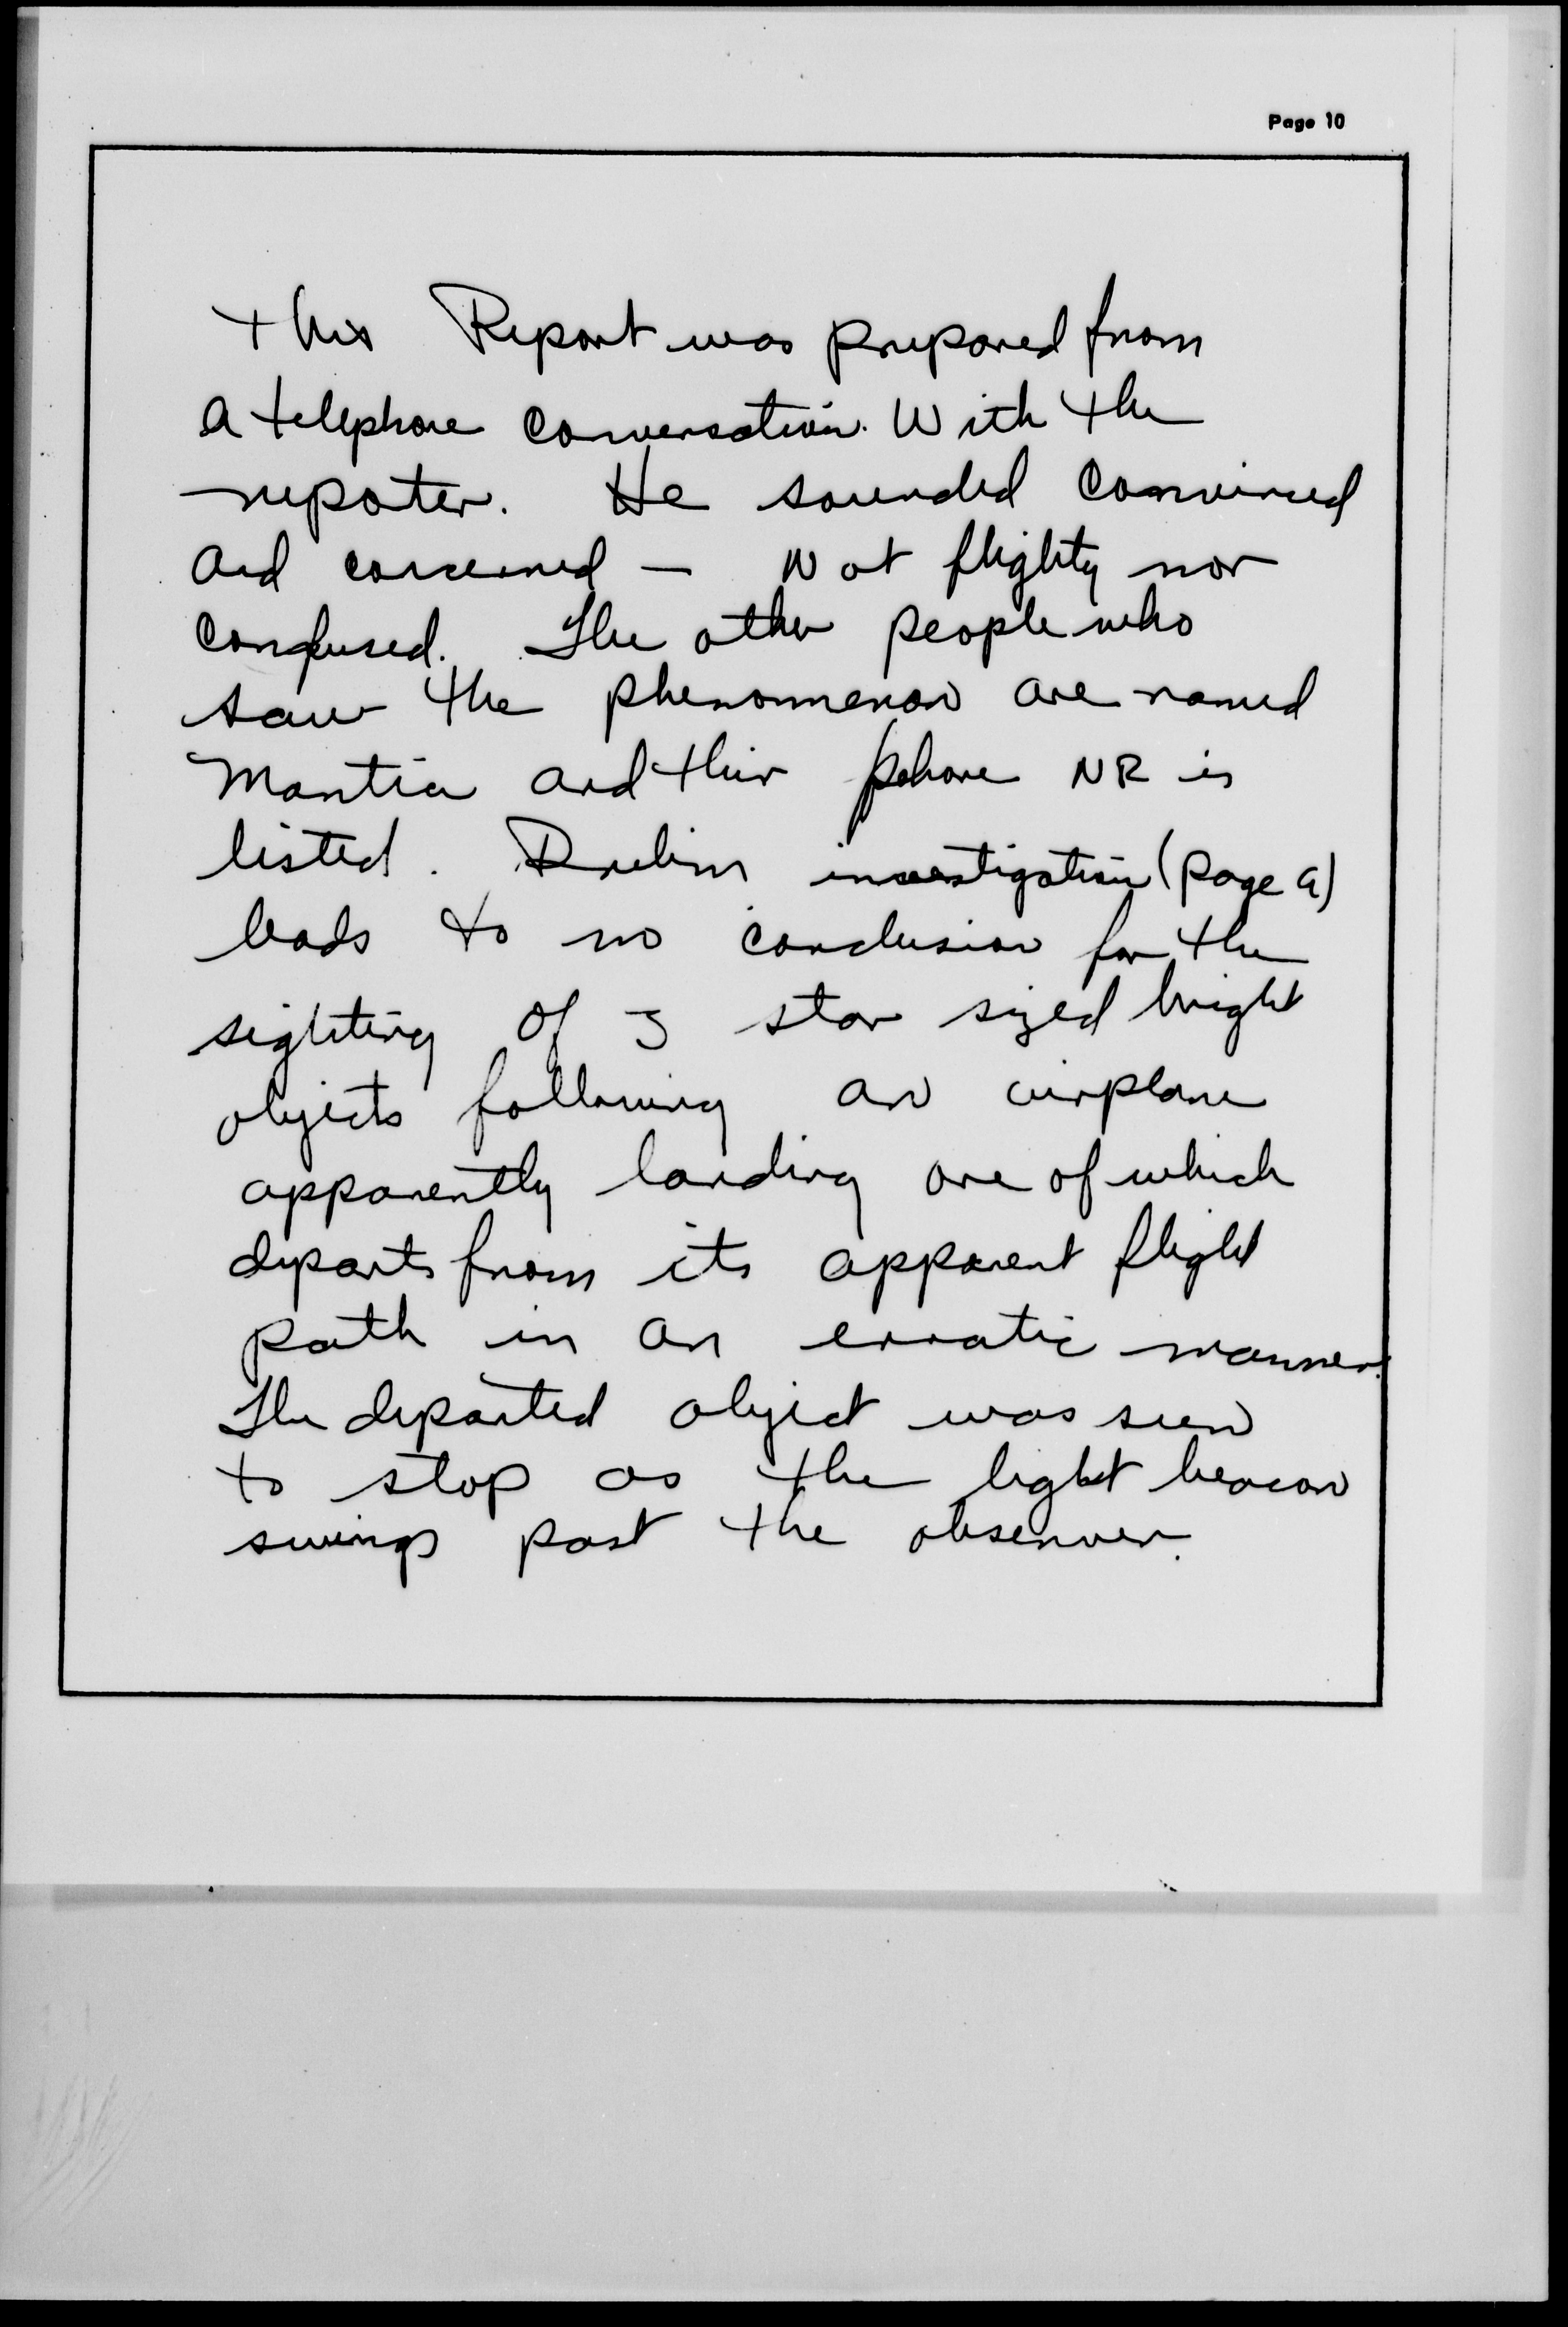 Page 10
this Report was prepared from
a telephone conversation. With the
repoter. He sounded convinced
and concerned — Not flighty nor
confused. The other people who
saw the phenomenon are named
Mantia and their phone NR is
listed. Prelim investigation (page 9)
leads to no conclusion for the
sighting of 3 star sized bright
objects following an airplane
apparently landing one of which
departs from its apparent flight
path in an erratic manner.
The departed object was seen
to stop as the light beacon
swings past the observer.